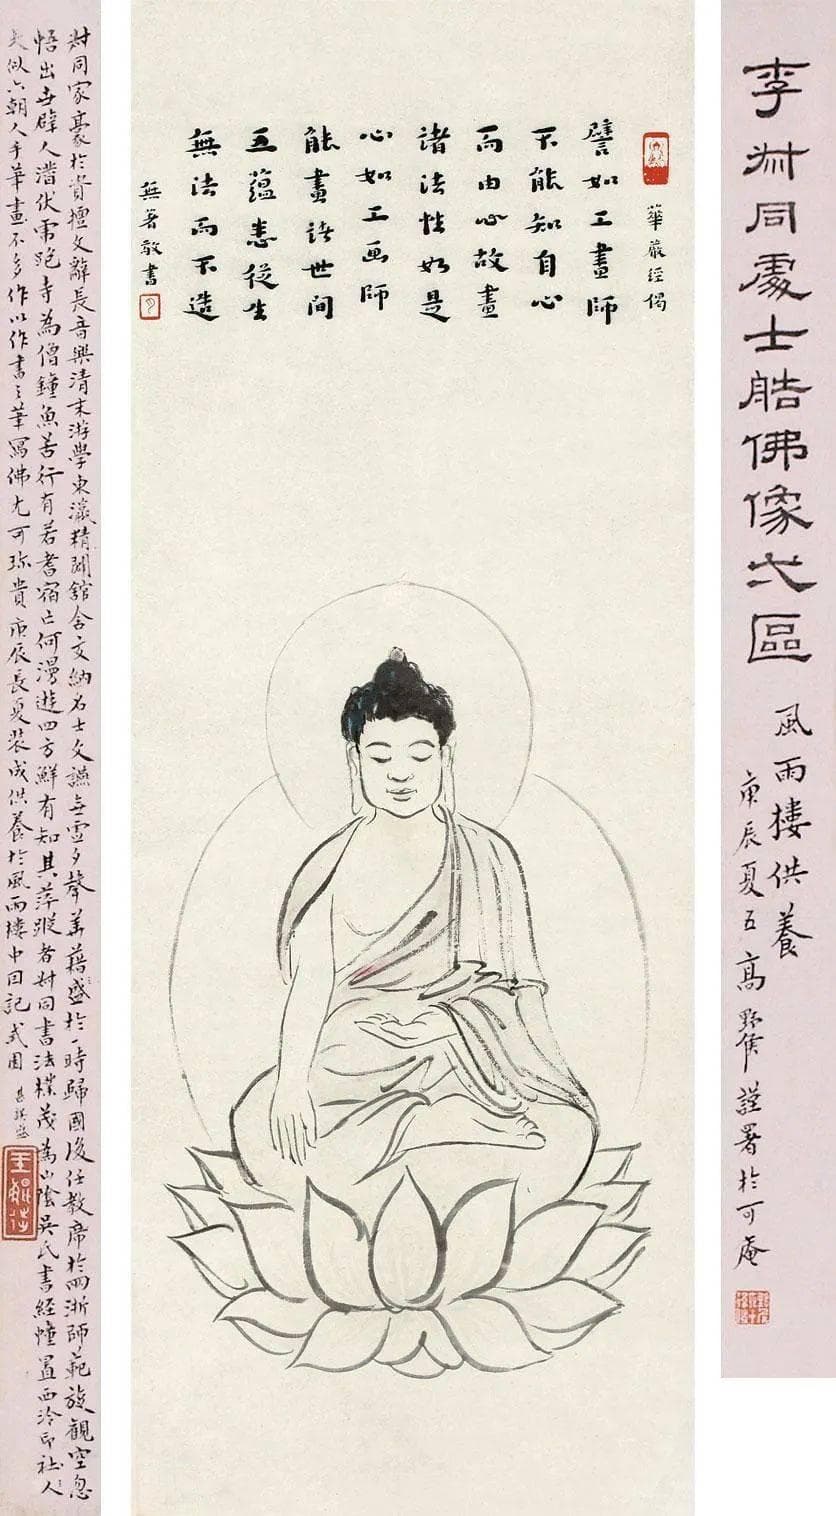 李尗同處士艁佛像弌區
風雨樓供養
庚辰夏五高野侯謹署於可庵
華嚴經偈
譬如工畫師
不能知自心
而由心故畫
諸法性如是
心如工画師
能畫諸世間
五蘊悉從生
無法而不造
無著敬書
尗同家豪於貲擅文辭長音樂清末游學東瀛精開舘舍交納名士文讌無虛夕聲華藉盛於一時歸國後任教席於兩浙師範旋觀空忽
悟出世辟人潛伏虎跑寺為僧鐘魚苦行有若耆宿亡何漫遊四方鮮有知其萍蹤者尗同書法樸茂為山陰吳氏書經幢置西泠印社人
似六朝人手筆畫不多作以作書之筆寫佛尤可珍貴庚辰長夏裝成供養於風雨樓中因記